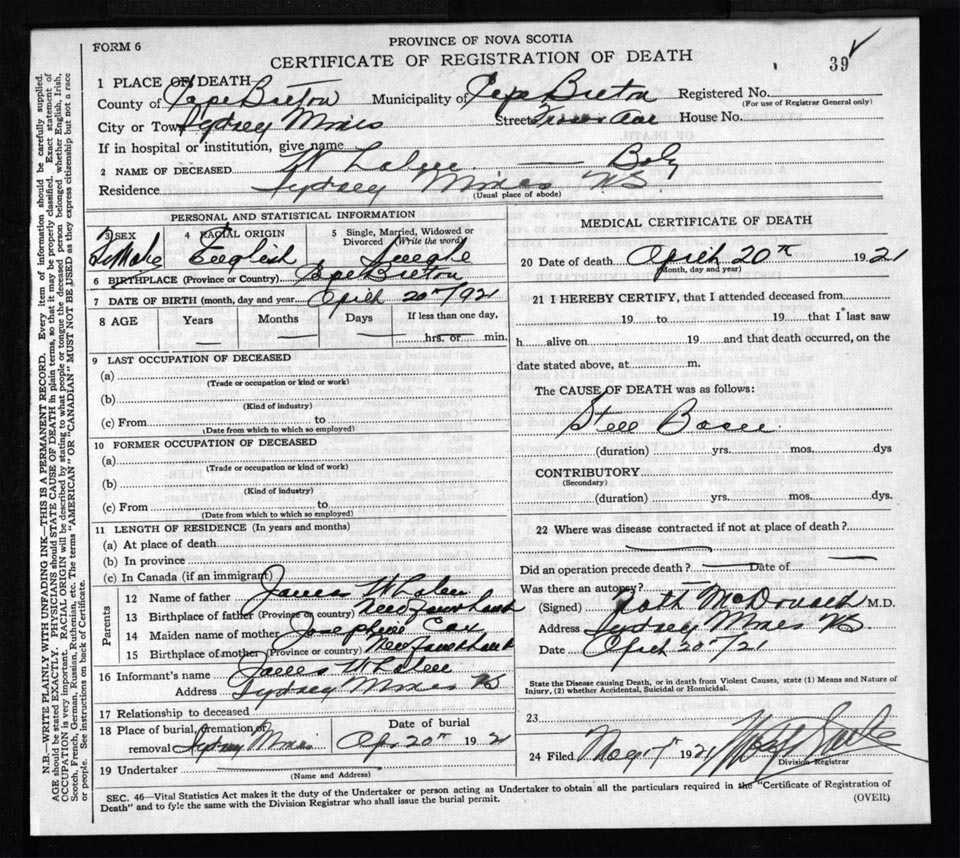 FORM 6
PROVINCE OF NOVA SCOTIA
CERTIFICATE OF REGISTRATION OF DEATH
39
1 PLACE OF DEATH
County of Cape Breton Municipality of Cape Breton Registered No.
(For use of Registrar General only)
City or Town Sydney Mines Street House No.
If in hospital or institution, give name
2 NAME OF DECEASED Whalen — Baby
Residence Sydney Mines NS.
(Usual place of abode)
PERSONAL AND STATISTICAL INFORMATION
3 SEX Female
4 RACIAL ORIGIN English
5 Single, Married, Widowed or Divorced (Write the word) Single
6 BIRTHPLACE (Province or Country) Cape Breton
7 DATE OF BIRTH (month, day and year April 20th/921
8 AGE Years Months Days If less than one day,
— — — hrs. or min.
9 LAST OCCUPATION OF DECEASED
(a)
(Trade or occupation or kind or work)
(b)
(Kind of industry)
(c) From to
(Date from which to which so employed)
10 FORMER OCCUPATION OF DECEASED
(a)
(Trade or occupation or kind of work)
(b)
(Kind of industry)
(c) From to
(Date from which to which so employed)
11 LENGTH OF RESIDENCE (In years and months)
(a) At place of death
(b) In province
(c) In Canada (if an immigrant)
Parents
12 Name of father James Whalen
13 Birthplace of father (Province or country) Newfoundland
14 Maiden name of mother Josephine Cox
15 Birthplace of mother (Province or country) Newfoundland
16 Informant's name James Whalen
Address Sydney Mines NS
17 Relationship to deceased
18 Place of burial, cremation or removal Sydney Mines
Date of burial Apr 20th 1921
19 Undertaker
(Name and Address)
MEDICAL CERTIFICATE OF DEATH
20 Date of death April 20th 1921
(Month, day and year)
21 I HEREBY CERTIFY, that I attended deceased from
19 to 19 that I last saw
h alive on 19 and that death occurred, on the
date stated above, at m.
The CAUSE OF DEATH was as follows:
Still Born
(duration) yrs. mos. dys
CONTRIBUTORY
(Secondary)
(duration) yrs. mos. dys.
22 Where was disease contracted if not at place of death?
Did an operation precede death? — Date of —
Was there an autopsy? —
(Signed) McDonald M.D.
Address Sydney Mines NS.
Date April 20th/21
State the Disease causing Death, or in death from Violent Causes, state (1) Means and Nature of
Injury, (2) whether Accidental, Suicidal or Homicidal.
23
24 Filed 1921
Division Registrar
SEC. 46—Vital Statistics Act makes it the duty of the Undertaker or person acting as Undertaker to obtain all the particulars required in the "Certificate of Registration of
Death" and to fyle the same with the Division Registrar who shall issue the burial permit.
(OVER)
N.B.—WRITE PLAINLY, WITH UNFADING INK—THIS IS A PERMANENT RECORD. Every item of information should be carefully supplied.
AGE should be stated EXACTLY. PHYSICIANS should STATE CAUSE OF DEATH in plain terms, so that it may be properly classified. Exact statement of
OCCUPATION is very important. RACIAL ORIGIN will be described by stating to what people or tongue the deceased person belonged whether English, Irish,
Scotch, French, German, Russian, Ruthenian, etc. The terms "AMERICAN" OR "CANADIAN" MUST NOT BE USED as they express citizenship but not a race
or people. See instructions on back of Certificate.